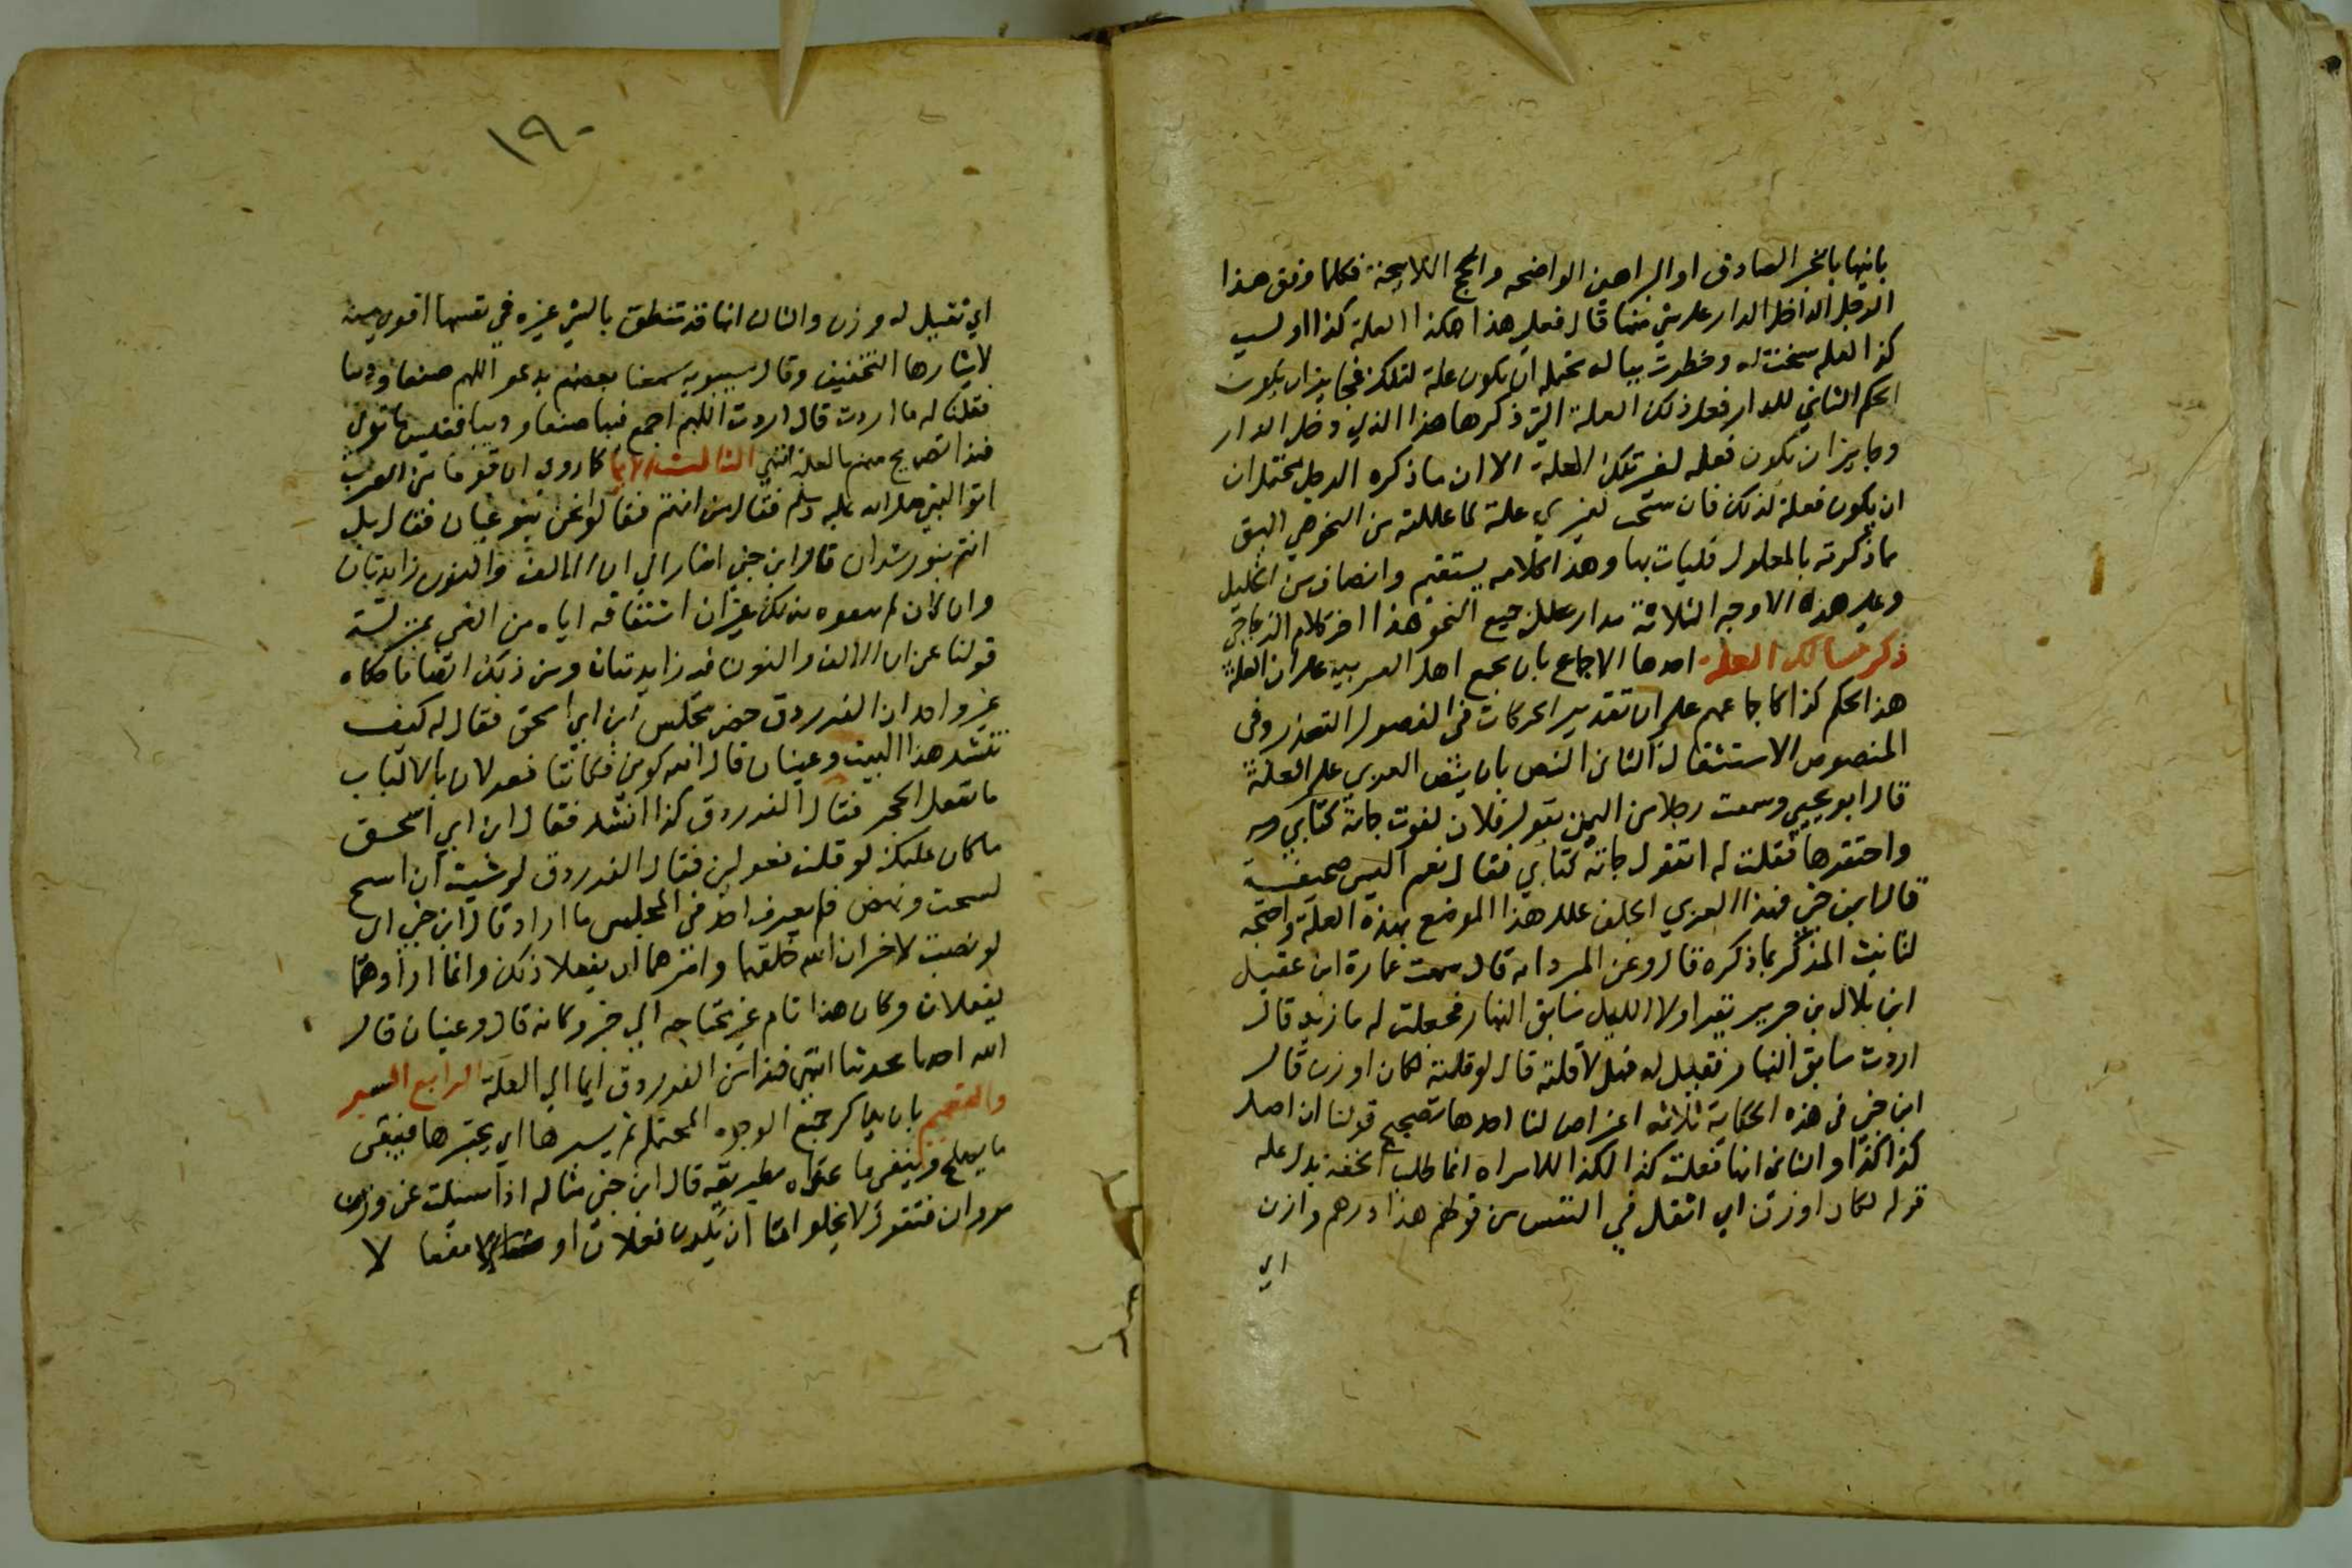 بانيها بالخبر الصادق او البراهين الواضحه والحجج اللايحة فكلما وقف هذا
الرجل الداخل الدار على شي منها قال فعل هذا هكذا العلة كذا او لسبب
كذا لعله سنحت له وخطرت بباله محتمله ان تكون علة لتلك فجايز ان يكون
الحكم الثاني للدار فعل ذلك العلة التي ذكرها هذا الذي دخل الدار
وجايز ان يكون فعله لغير تلك العلة الا ان ما ذكره الرجل محتمل ان
ان يكون فعلة لذلك فان سنحت لغيري علة لما عللته من النحو هي اليق
مما ذكرته بالمعلول فليات بها وهذا كلام مستقيم وانصاف من الخليل
وعلى هذه الاوجه الثلاثة مدار علل جميع النحو هذا اخر كلام الزجاجي
ذكر مسالك العلة احدها الاجماع بان يجمع اهل العربية على ان العلة
هذا الحكم كذا كاجماعهم على ان تقدير الحركات في المقصور التعذر وفي
المنقوص الاستثقال الثاني النص بان ينص العربي على العلة
قال ابو يحيى وسمعت رجلا من اليمن يقول فلان لغوب جاته كتابي
واحتقرها فقلت له اتقول جاته كتابي فقال نعم اليس صحيفة
قال ابن جني فهذا العربي الجلف علل هذا الموضع بهذه العلة واحتج
لتانيث المذكر بما ذكره قال وعن المبرد انه قال سمعت عمارة ابن عقيل
ابن بلال بن جرير يقرا ولا الليل سابق النهار فجعلت له ما تريد قال
اردت سابق النهار فقيل له فهل لا قلته قال لو قلته لكان اوزن قال
ابن جني في هذه الحكاية ثلاثه اغراض لنا احدها تصحيح قولنا ان اصل
كذا كذا والثاني انها فعلت كذا لكذا الا تراه انما طلب الخفة يدل عليه
قوله لكان اوزن اي اثقل في النفس من قولهم هذا درهم وازن
اي
١٩٠
اي ثقيل له وزن والثالث انها قد تنطق بالشي غيره في نفسها اقوى منه
لايثارها التخفيف وقال سيبويه سمعنا بعضهم يدعو اللهم ضبعا وذيبا
فقلنا له ما اردت قال اردت اللهم اجمع فيها ضبعا وذيبا
فهذا تصريح منهم بالعلة انتهى الثالث الايما كما روى ان قوما من العرب
اتوا النبي صلى الله عليه وسلم فقال من انتم فقالوا نحن بنو غيان فقال بل
انتم بنو رشدان قال ابن جني اشار الى ان الالف والنون زايدتان
وان كان لم يتفوه بذلك غير ان اشتقاقه اياه من الغي بمنزلة
قولنا عن ان الالف والنون فيه زايدتان ومن ذلك ايضا ما حكاه
غير واحد ان الفرزدق حضر مجلس ابن ابي اسحق فقال له كيف
تنشد هذا البيت وعينان قال الله كونا فكانتا فعولان بالالباب
ما تفعل الخمر فقال الفرزدق كذا انشد فقال ابن ابي اسحق
ما كان عليك لو قلت فعولين فقال الفرزدق لو شيت ان اسبح
لسبحت ونهض فلم يعرف احد في المجلس ما اراد قال ابن جني اي
لو نصب لاخبر ان الله خلقهما وامرهما ان يفعلا ذلك وانما اراد هما
يفعلان وكان هذا تام غير محتاجه الي خبر وكانه قال وعينان قال
الله احدثا محدثا انتهى فهذا من الفرزدق ايما الي العلة الرابع السبر
والتقسيم بان يذكر جميع الوجوه المحتمله ثم يسبرها اي يختبرها فيبقى
ما يصلح وينفي ما عداه بطريقه قال ابن جني مثاله اذا سئلت عن وزن
مروان فتقول لا يخلو اما ان يكون فعلان او مفعالا لا